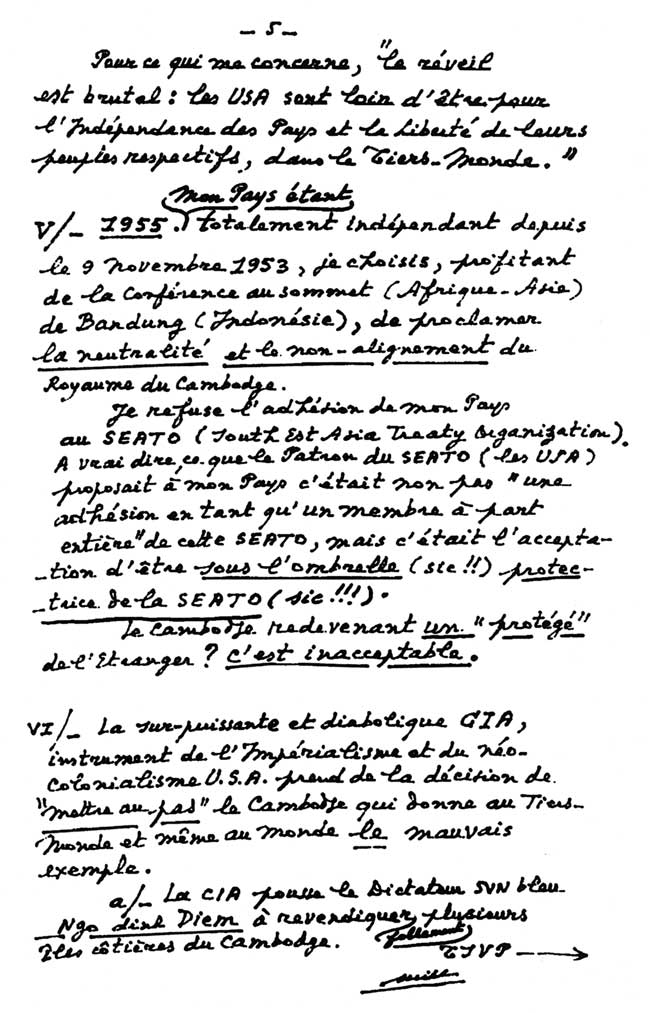 - 5 -
Pour ce qui me concerne, "le réveil
est brutal : les USA sont loin d'être pour
l'Indépendance des Pays et la Liberté de leurs
peuples respectifs, dans le Tiers-Monde."
Mon Pays étant
V/- 1955. totalement indépendant depuis
le 9 novembre 1953, je choisis, profitant
de la Conférence au sommet (Afrique-Asie)
de Bandung (Indonésie), de proclamer
la neutralité et le non-alignement du
Royaume du Cambodge.
Je refuse l'adhésion de mon Pays
au SEATO (South Est Asia Treaty Organization).
A vrai dire, ce que le Patron du SEATO (les USA)
proposait à mon Pays c'était non pas "une
adhésion en tant qu'un membre à part
entière" de cette SEATO, mais c'était l'accepta-
-tion d'être sous l'ombrelle (sic!!) protec-
-trice de la SEATO (sic!!!).
Le Cambodge redevenant un "protégé"
de l'Etranger ? C'est inacceptable.
VI/- La sur-puissante et diabolique CIA,
instrument de l'Impérialisme et du néo-
colonialisme U.S.A. prend de la décision de
"mettre au pas" le Cambodge qui donne au Tiers-
Monde et même au monde le mauvais
exemple.
a/- La CIA pousse le Dictateur SVN bleu
Ngo dinh Diem à revendiquer plusieurs
Iles côtières du Cambodge. follement
TSVP →
suite